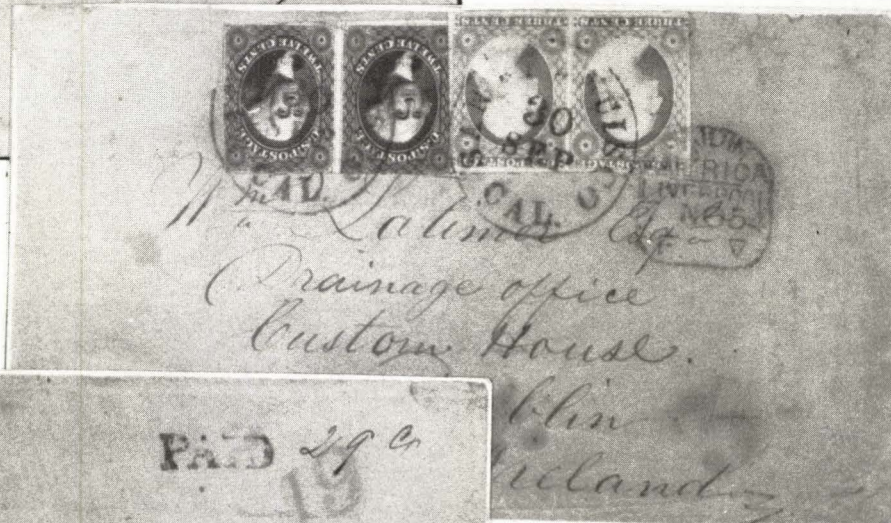 TWELVE CENTS
U.S. POSTAGE
TWELVE CENTS
U.S. POSTAGE
THREE CENTS
THREE CENTS
30
SEP
CAL.
CAL.
AMERICA
LIVERPOOL
Wm Latimer Esqr
Drainage office
Custom House.
blin
Ireland
PAID 29 Cts
19